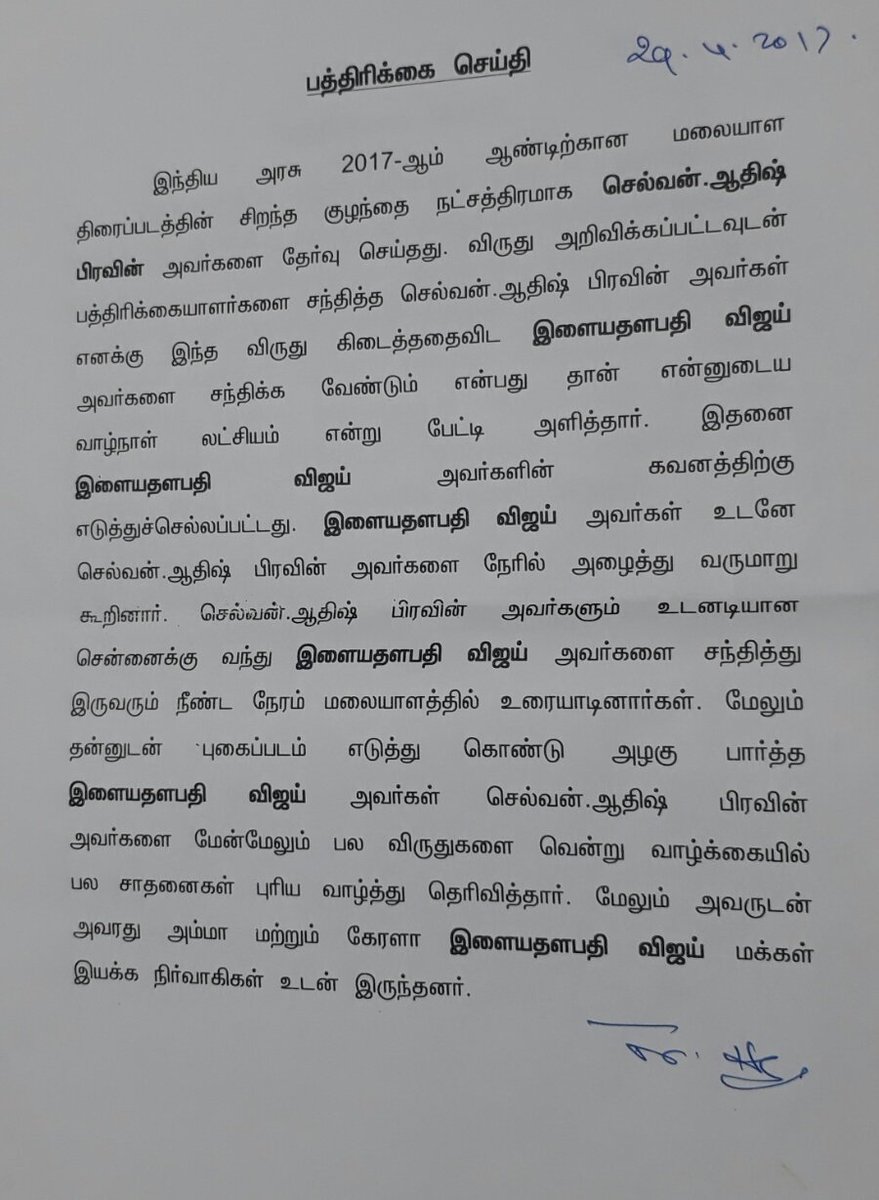 29.4.2017.
பத்திரிக்கை செய்தி
இந்திய அரசு 2017-ஆம் ஆண்டிற்கான மலையாள
திரைப்படத்தின் சிறந்த குழந்தை நட்சத்திரமாக செல்வன்.ஆதிஷ்
பிரவின் அவர்களை தேர்வு செய்தது. விருது அறிவிக்கப்பட்டவுடன்
பத்திரிக்கையாளர்களை சந்தித்த செல்வன்.ஆதிஷ் பிரவின் அவர்கள்
எனக்கு இந்த விருது கிடைத்ததைவிட இளையதளபதி விஜய்
அவர்களை சந்திக்க வேண்டும் என்பது தான் என்னுடைய
வாழ்நாள் லட்சியம் என்று பேட்டி அளித்தார். இதனை
இளையதளபதி விஜய் அவர்களின் கவனத்திற்கு
எடுத்துச்செல்லப்பட்டது. இளையதளபதி விஜய் அவர்கள் உடனே
செல்வன்.ஆதிஷ் பிரவின் அவர்களை நேரில் அழைத்து வருமாறு
கூறினார். செல்வன்.ஆதிஷ் பிரவின் அவர்களும் உடனடியான
சென்னைக்கு வந்து இளையதளபதி விஜய் அவர்களை சந்தித்து
இருவரும் நீண்ட நேரம் மலையாளத்தில் உரையாடினார்கள். மேலும்
தன்னுடன் புகைப்படம் எடுத்து கொண்டு அழகு பார்த்த
இளையதளபதி விஜய் அவர்கள் செல்வன்.ஆதிஷ் பிரவின்
அவர்களை மேன்மேலும் பல விருதுகளை வென்று வாழ்க்கையில்
பல சாதனைகள் புரிய வாழ்த்து தெரிவித்தார். மேலும் அவருடன்
அவரது அம்மா மற்றும் கேரளா இளையதளபதி விஜய் மக்கள்
இயக்க நிர்வாகிகள் உடன் இருந்தனர்.